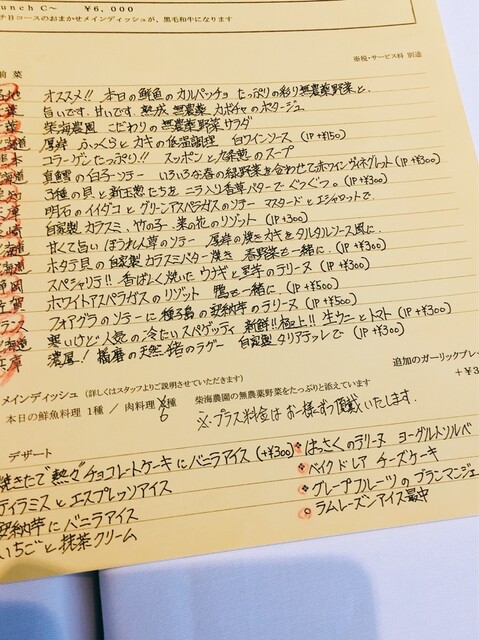 unch C～ ¥6,000
チBコースのおまかせメインディッシュが、黒毛和牛になります
※税・サービス料 別途
前菜
オススメ!! 本日の鮮魚のカルパッチョ たっぷりの彩り無農薬野菜と。
旨いです。甘いです。熟成 無農薬 カボチャのポタージュ
柴海農園 こだわりの無農薬野菜サラダ
厚岸 ふっくらとカキの低温調理 白ワインソース (1P +¥150)
コラーゲンたっぷり!! スッポンと九条葱のスープ
真鱈の白子ソテー いろいろな春の緑野菜を合わせて赤ワインヴィネグレット(1P +¥300)
3種の貝と新玉葱たちを ニラ入り香草バターでぐつぐつ。(1P +¥300)
明石のイイダコとグリーンアスパラガスのソテー マスタードとエシャロットで
自家製カラスミ、竹の子、菜の花のリゾット (1P +300)
甘くて旨い ほうれん草のソテー 厚岸の焼きカキをタルタルソース風に
ホタテ貝の自家製カラスミバター焼き 春野菜と一緒に。(1P +¥300)
スペシャリテ!! 香ばしく焼いたウナギと里芋のテリーヌ (1P +¥300)
ホワイトアスパラガスのリゾット 鴨と一緒に (1P +¥500)
フォアグラのソテーに種子島の安納芋のテリーヌ (1P +¥500)
寒いけど人気の冷たいスパゲッティ 新鮮!!極上!! 生ウニとトマト (1P +¥300)
濃厚!! 播磨の天然猪のラグー 自家製タリアテッレで (1P +¥300)
追加のガーリックブレッ
+¥3
メインディッシュ (詳しくはスタッフよりご説明させていただきます)
本日の鮮魚料理 1種 / 肉料理 6種 柴海農園の無農薬野菜をたっぷりと添えています
※プラス料金はお一人様ずつ頂戴いたします。
デザート
焼きたて熱々チョコレートケーキにバニラアイス (+¥300)
ティラミスとエスプレッソアイス
安納芋にバニラアイス
いちごと抹茶クリーム
はっさくのテリーヌ ヨーグルトソルベ
ベイクドレア チーズケーキ
グレープフルーツのブランマンジェ
ラムレーズンアイス最中